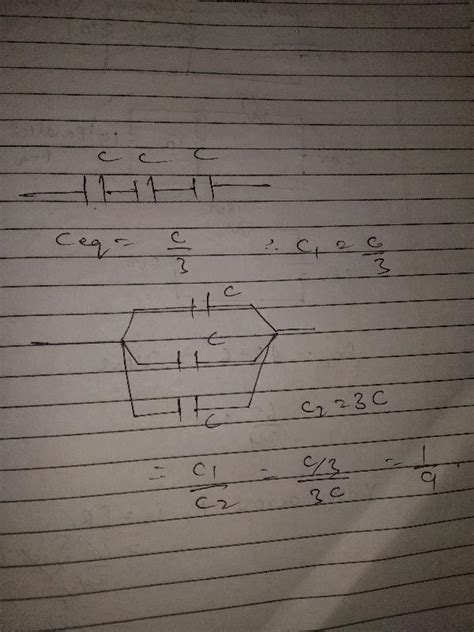 C C C
Ceq = C/3 ∴ C₁ = C/3
C
C
C
C₂ = 3C
= C₁/C₂ = C/3/3C = 1/9